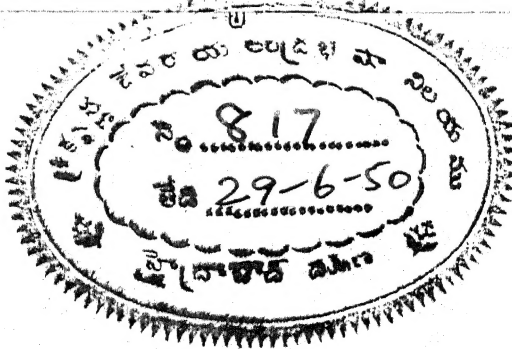 శ్రీకృష్ణ దేవరాయ ఆంధ్ర భాషా నిలయము
నెం 817
తేది 29-6-50
హైద్రాబాద్